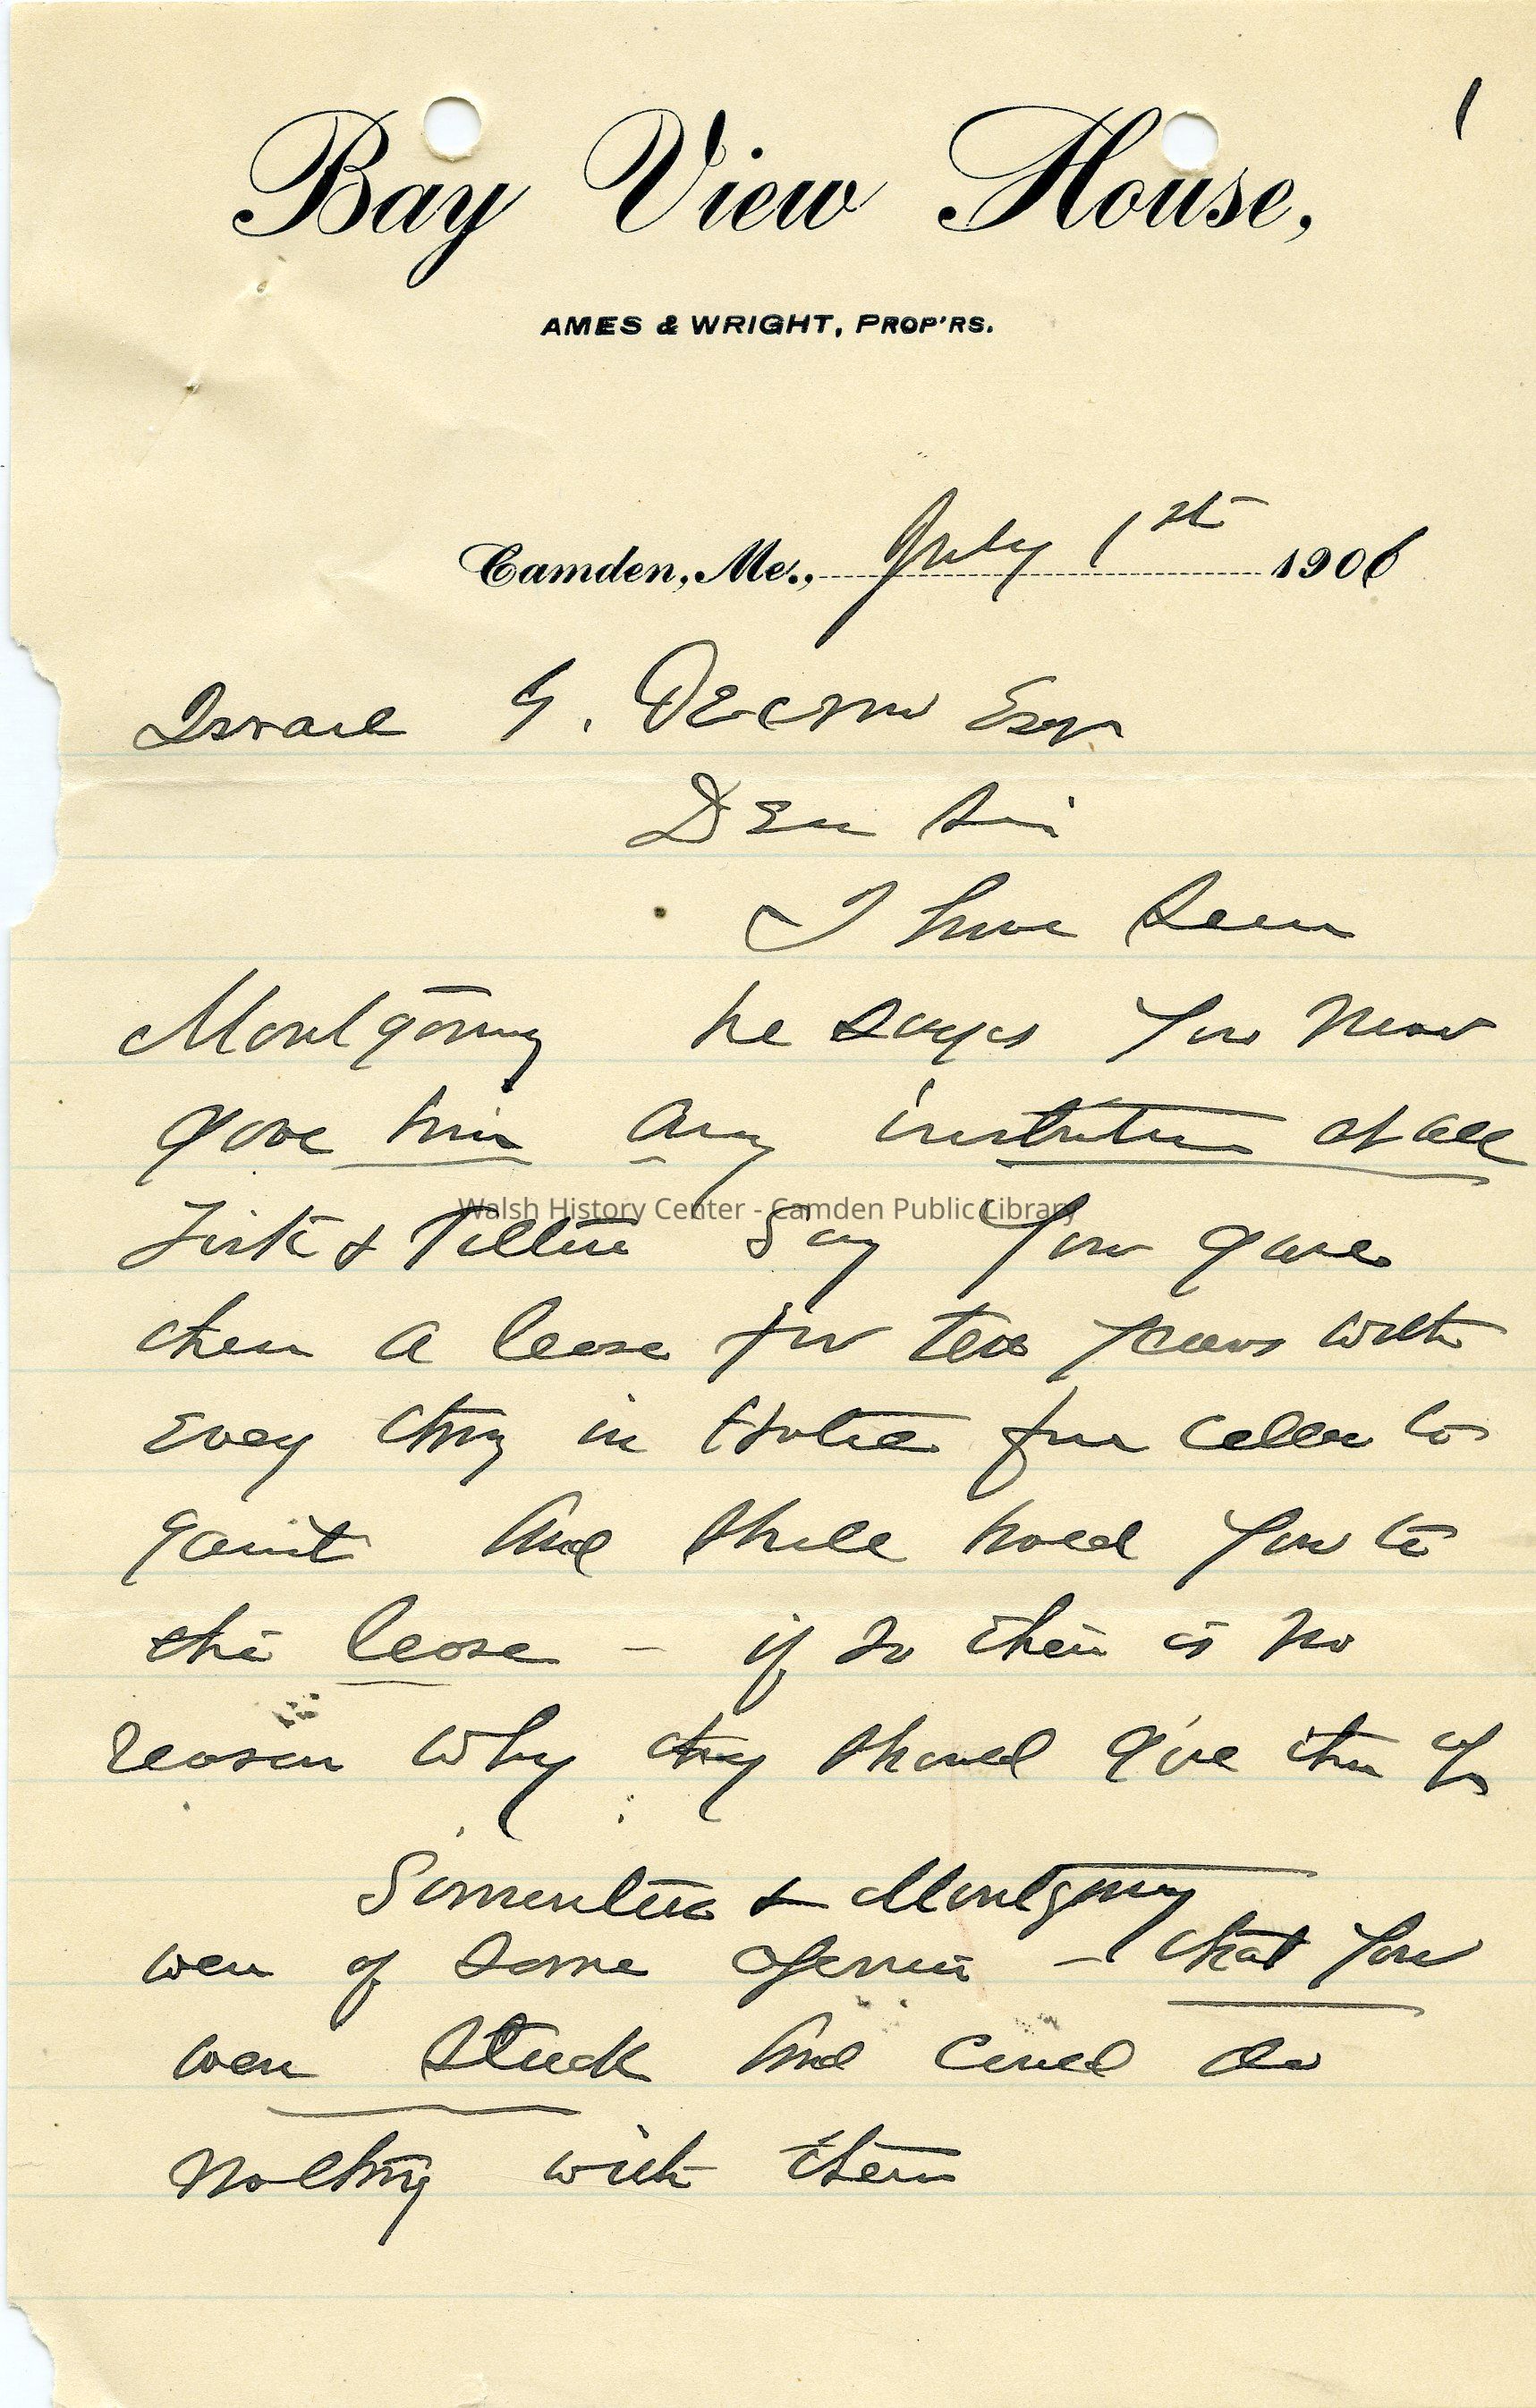 1
Bay View House,
AMES & WRIGHT, PROP'RS.
Camden, Me., July 1st 1906
G. Esqr
Dear Sir
I have seen
Montgomery he says You never
gave him any instruction at all
& say You gave
them a lease for ten years with
Every thing in Hotel from celler to
garit and shall hold You to
the lease – if so their is no
reason why they should give them up
Simonton & Montgomery
were of same openion – that You
were stuck and could do
nothing with them
Walsh History Center - Camden Public Library